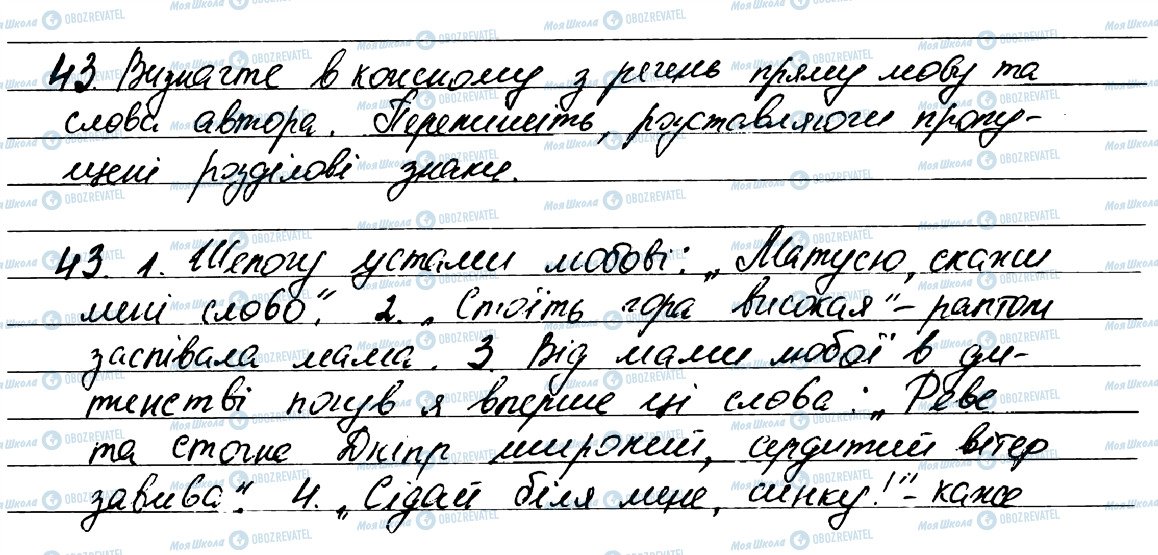 43. Визначте в кожному з речень пряму мову та
слова автора. Перепишіть, розставляючи пропу-
щені розділові знаки.
43. 1. Шепочу устами любові: „Матусю, скажи
мені слово". 2. „Стоїть гора високая" – раптом
заспівала мама. 3. Від мами любої в ди-
тенстві почув я вперше ці слова: „Реве
та стогне Дніпр широкий, сердитий вітер
завива". 4. „Сідай біля мене, синку!" – каже